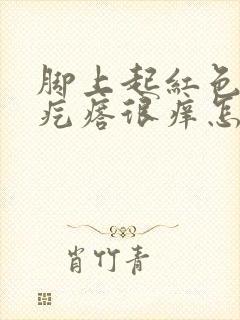 脚上起红色
疙瘩很痒怎
肖竹青